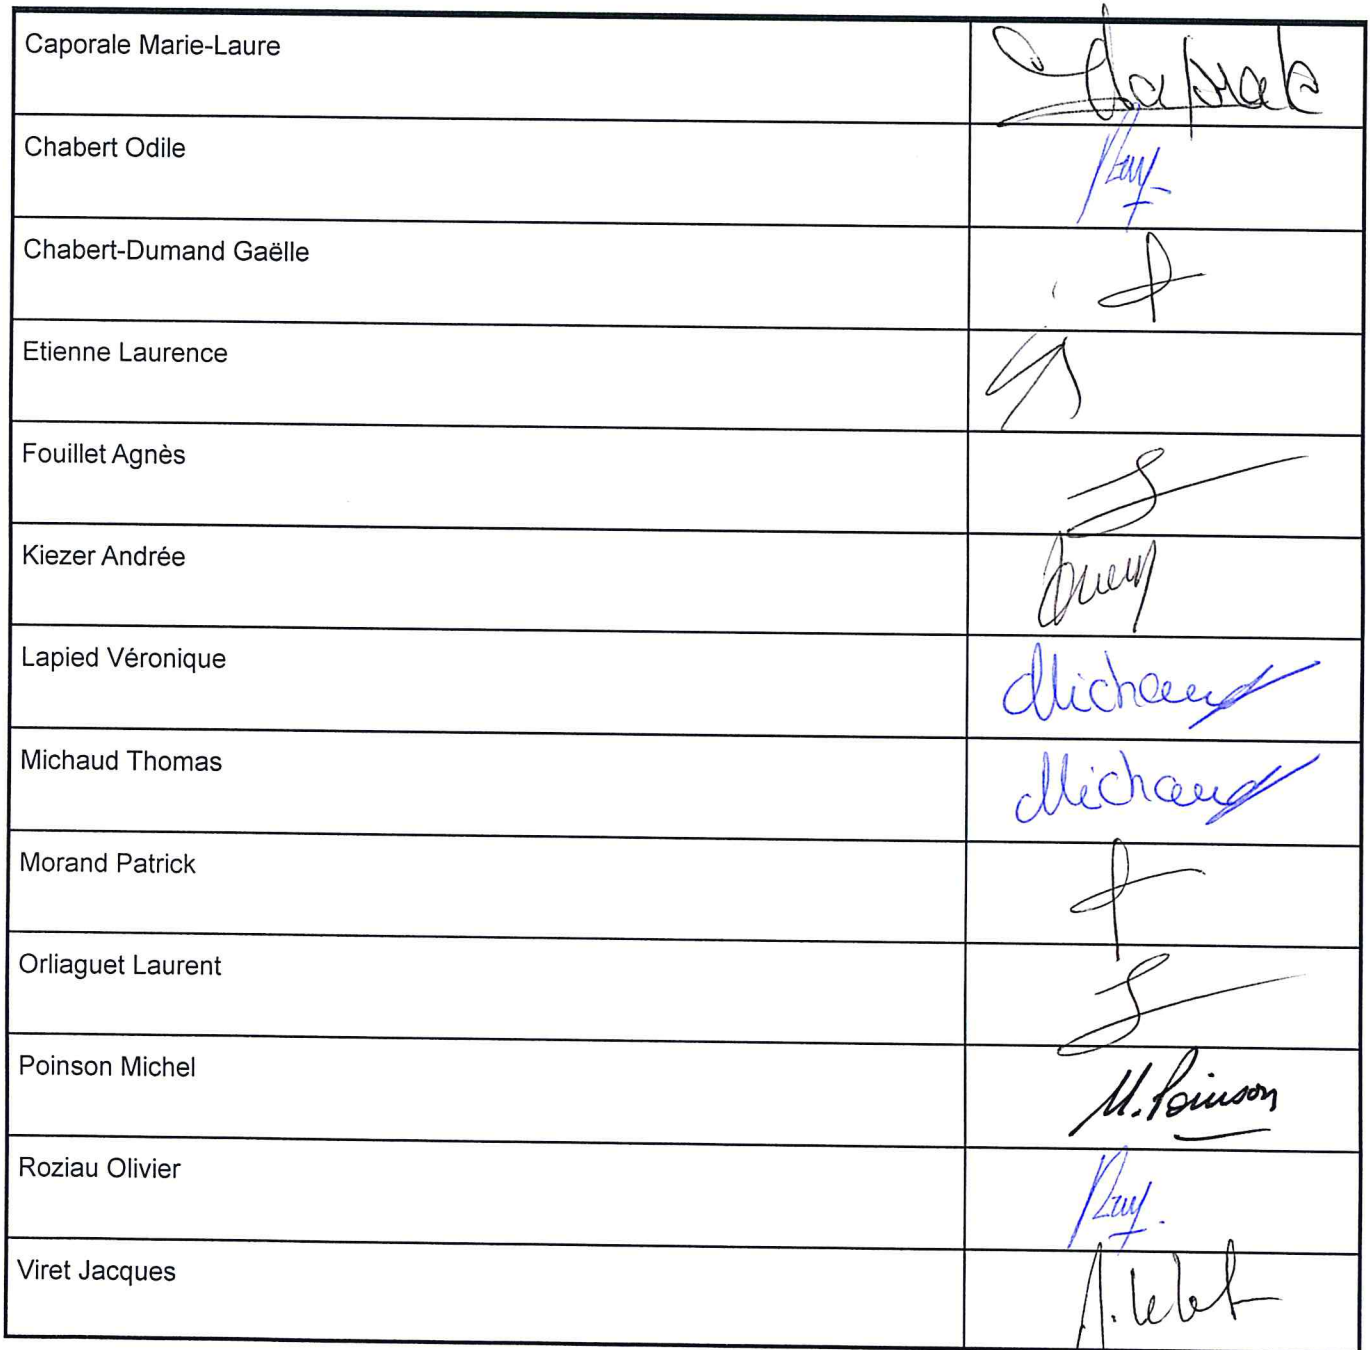 Caporale Marie-Laure
Chabert Odile
Chabert-Dumand Gaëlle
Etienne Laurence
Fouillet Agnès
Kiezer Andrée
Lapied Véronique
Michaud
Michaud Thomas
Michaud
Morand Patrick
Orliaguet Laurent
Poinson Michel
M. Poinson
Roziau Olivier
Viret Jacques